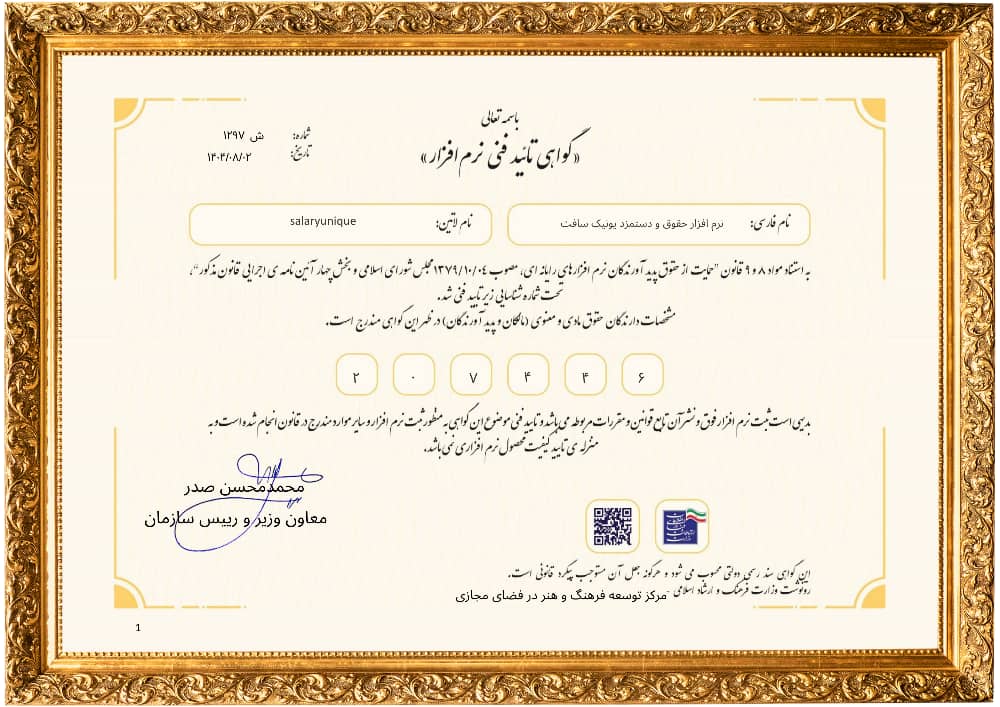 باسمه تعالی
«گواهی تائید فنی نرم افزار»
شماره: ش ۱۲۹۷
تاریخ: ۱۴۰۴/۰۸/۰۲
نام فارسی: نرم افزار حقوق و دستمزد یونیک سافت
نام لاتین: salaryunique
به استناد مواد ۸ و ۹ قانون "حمایت از حقوق پدید آورندگان نرم افزارهای رایانه ای، مصوب ۱۳۷۹/۱۰/۰۴ مجلس شورای اسلامی و بخش چهار آئین نامه ی اجرایی قانون مذکور"،
تحت شماره شناسایی زیر تایید فنی شد.
مشخصات دارندگان حقوق مادی و معنوی (مالکان و پدید آورندگان) در ظهر این گواهی مندرج است.
۲ ۰ ۷ ۴ ۴ ۶
بدیهی است ثبت نرم افزار فوق و نشر آن تابع قوانین و مقررات مربوطه می باشد و تایید فنی موضوع این گواهی به منظور ثبت نرم افزار و سایر موارد مندرج در قانون انجام شده است و به
منزله ی تایید کیفیت محصول نرم افزاری نمی باشد.
محمدمحسن صدر
معاون وزیر و رییس سازمان
این گواهی سند رسمی دولتی محسوب می شود و هرگونه جعل آن مستوجب پیگرد قانونی است.
رونوشت وزارت فرهنگ و ارشاد اسلامی -مرکز توسعه فرهنگ و هنر در فضای مجازی
1